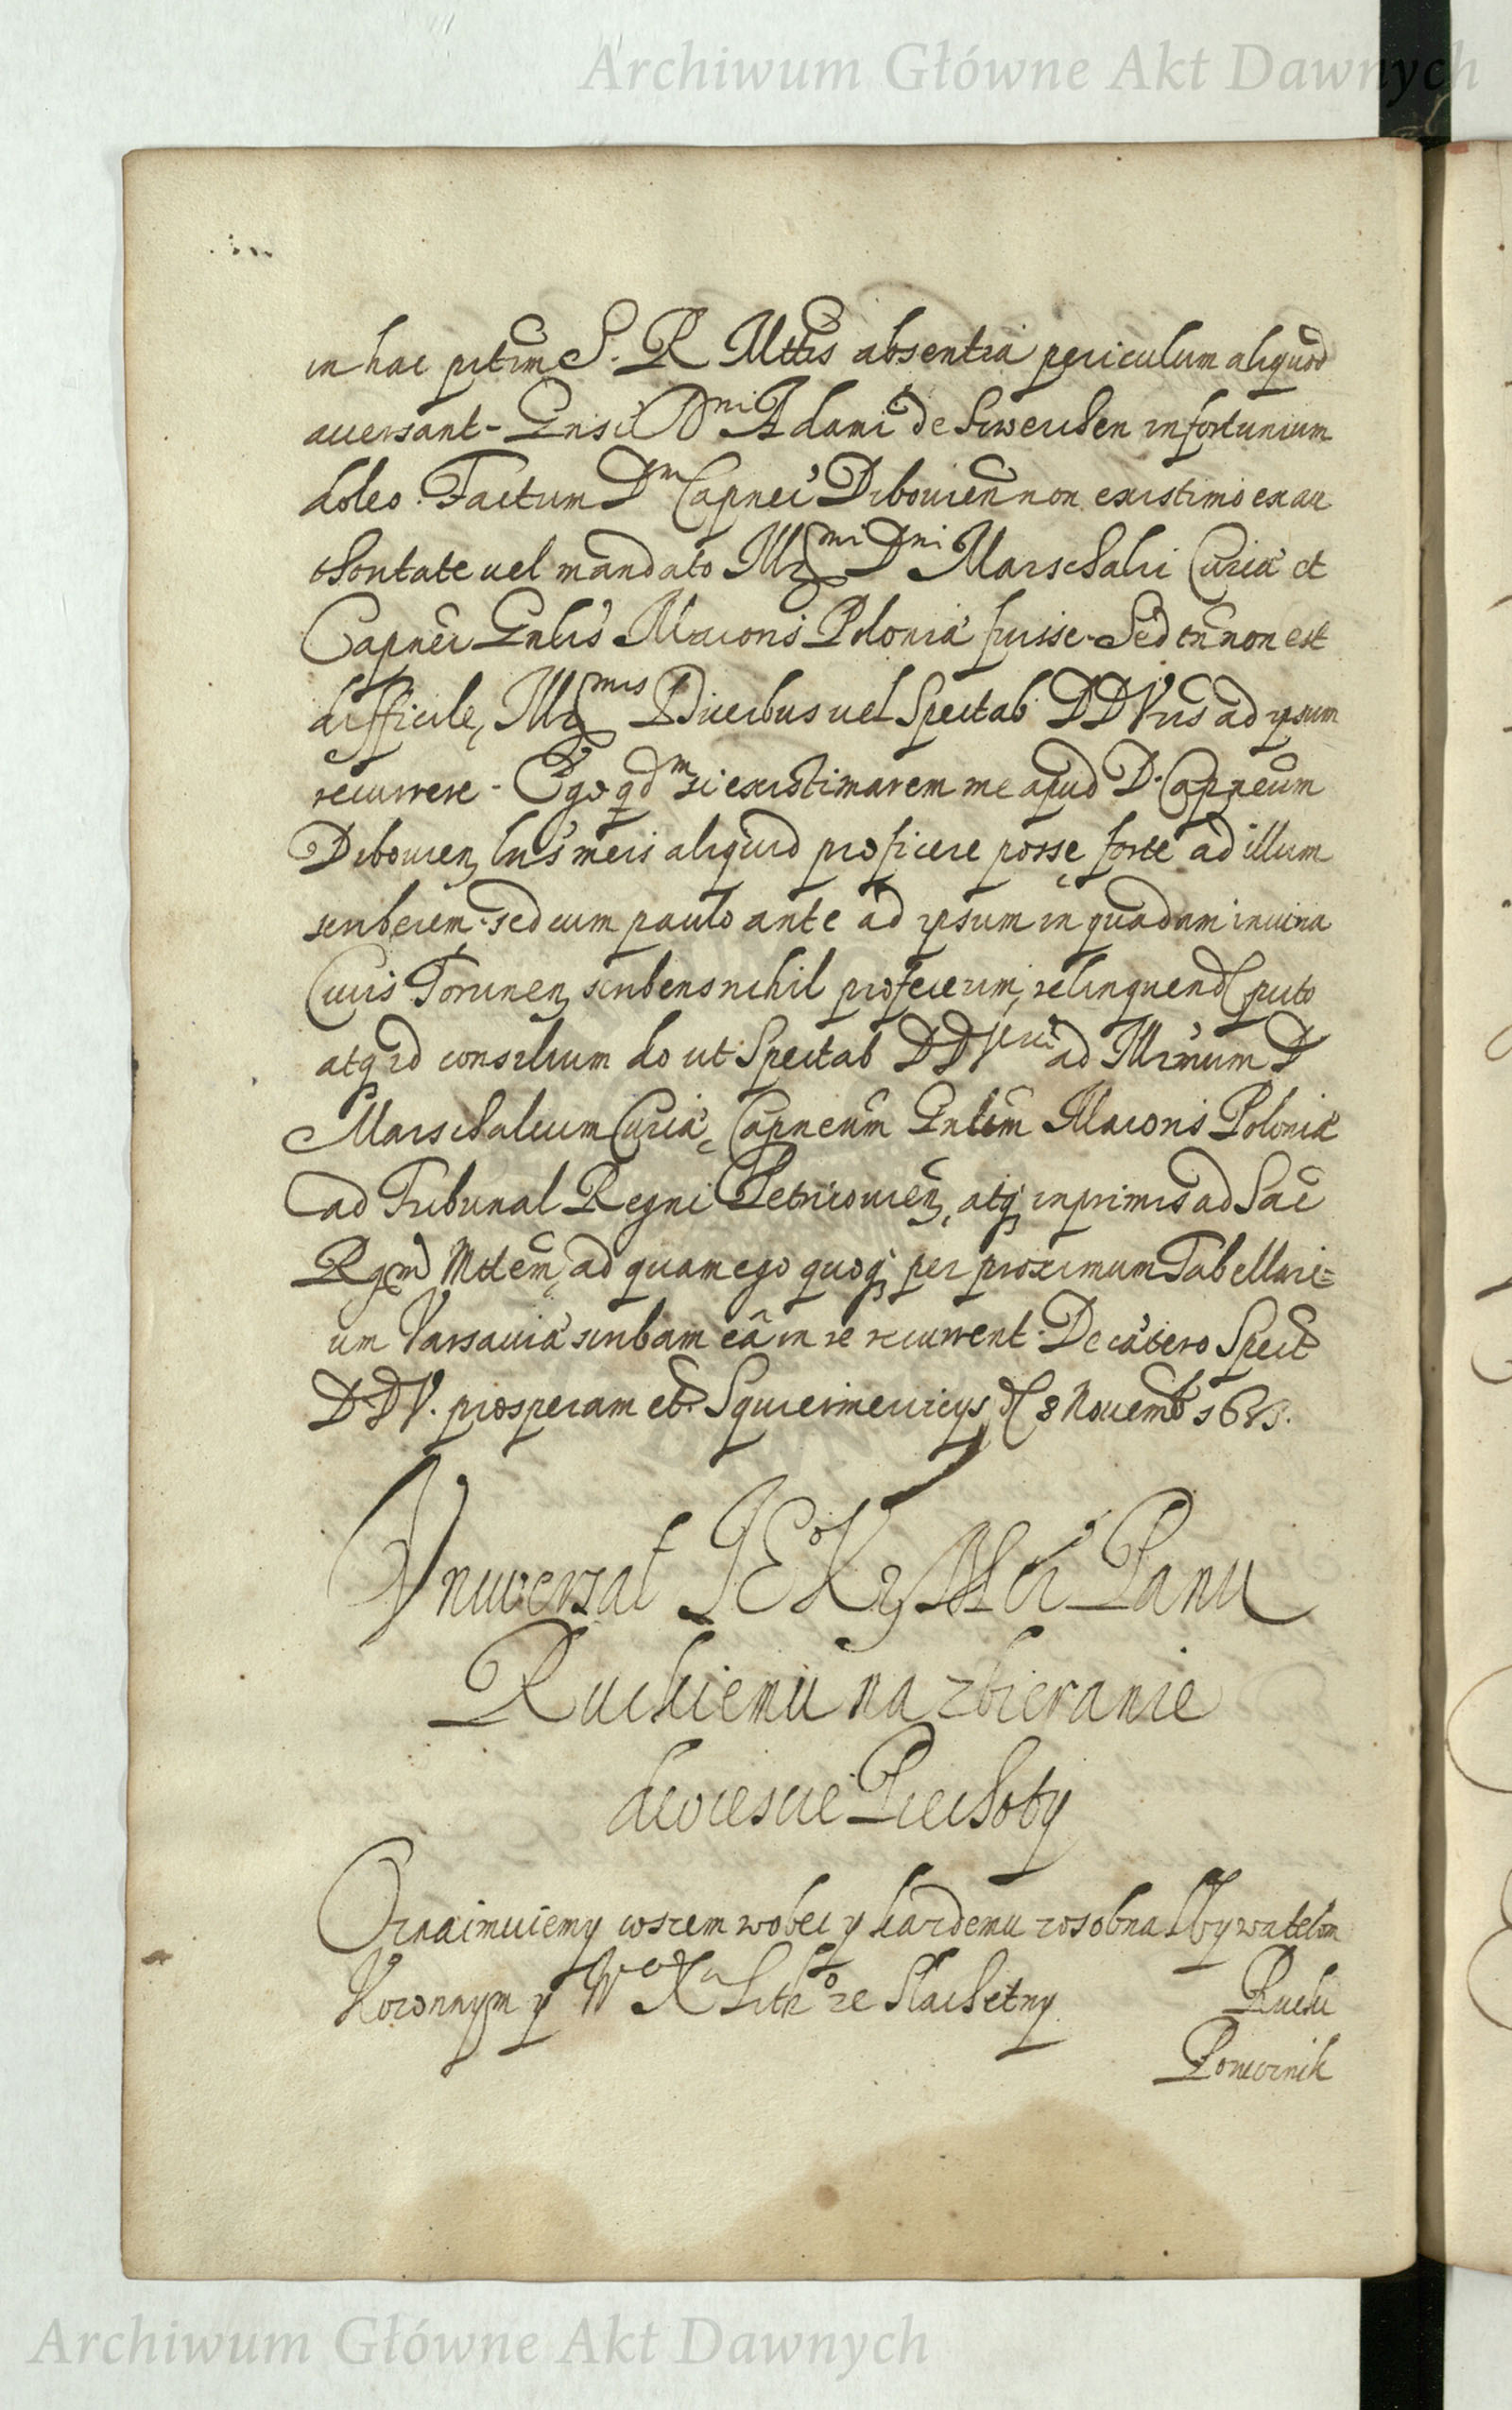 Archiwum Główne Akt Dawnych
in hac prtim S. R Mttis absentia periculum aliquod
auersant. Gnsi Dni Adami de Sweichen infortunium
doleo. Factum Dni Capnei Dibouien non existimo ex au
thoritate uel mandato Mgmi Dni Marschalci Curiæ et
Capnei Gnlis Maioris Poloniæ fuisse. Sed tn non est
difficile, Mgmis Ducibus uel Spectab DD Vris ad ipsum
recurrere. Ego qdm si existimarem me apud D. Capneum
Dibouien, lris meis aliquid proficere posse, forte ad illum
scriberem. sed cum paulo ante ad ipsum in quadam iniuria
Ciuis Torunen, scribens nihil profecerim, relinquend puto
atq id consilium do ut Spectab DD Vræ ad Illmum D
Marschalcum Curiæ, Capneum Gnlem Maioris Poloniæ
ad Tribunal Regni Petricouien, atq inprimis ad Sac
Rgm Mttem, ad quam ego quoq per proximum Tabellari=
um Varsauia scribam eâ in re recurrent. De cætero Spect
D.D V. prosperam etc. Squiernieuicys d 8 Nouemb
Vniwersał JEo Kr Mści Panu
Ruckiemu na zbieranie
dwiescie Piechoty
Oznaimuiemy wszem wobec y każdemu zosobna Obywatelom
Koronnym y Wo Xa Litho ze Slachetny Rucki
Porucznik
Archiwum Główne Akt Dawnych